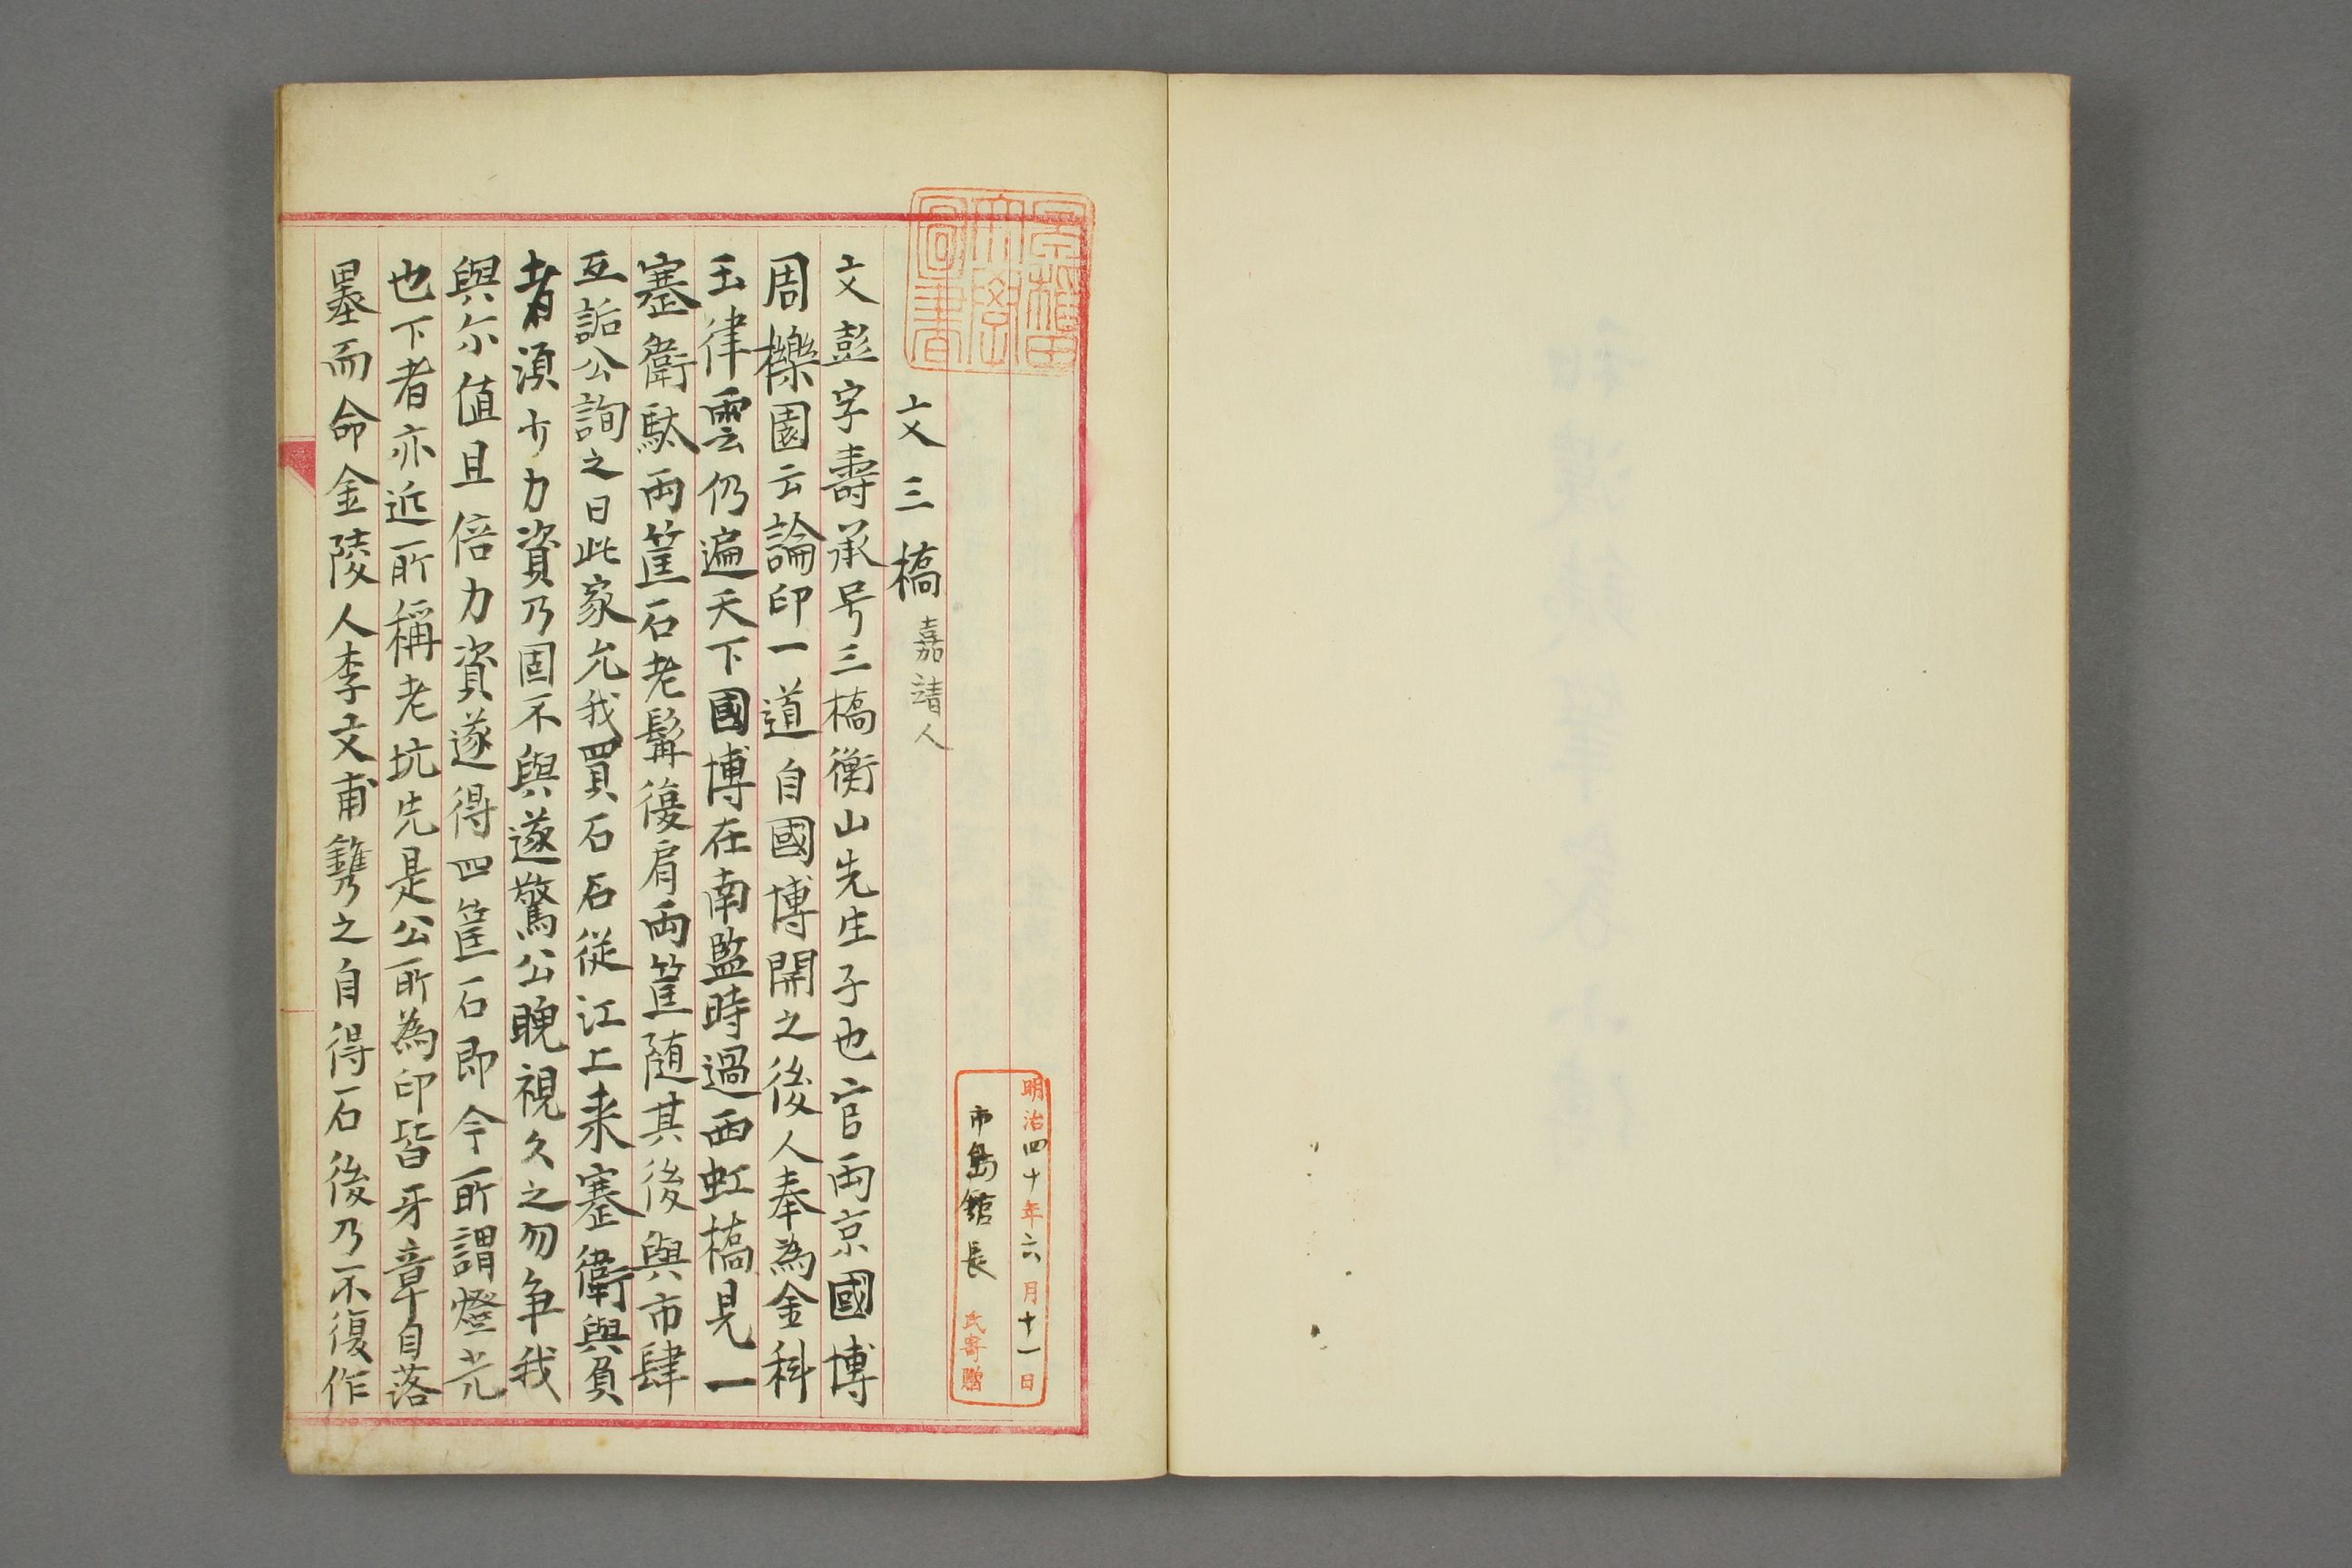 早稲田大學圖書
明治四十年六月十一日
市島館長氏寄贈
文三橋嘉靖人
文彭字壽承号三橋衡山先生子也官兩京國博
周櫟園云論印一道自國博開之後人奉為金科
玉律雲仍遍天下國博在南監時過西虹橋見一
蹇衛馱兩筐石老髯復肩兩筐随其後與市肆
互詬公詢之曰此家允我買石石從江上来蹇衛與負
者湏少力資乃固不與遂驚公睨視久之勿争我
與尓值且倍力資遂得四筐石即今所謂燈光
也下者亦近所稱老坑先是公所為印皆牙章自落
墨而命金陵人李文甫鐫之自得石後乃不復作